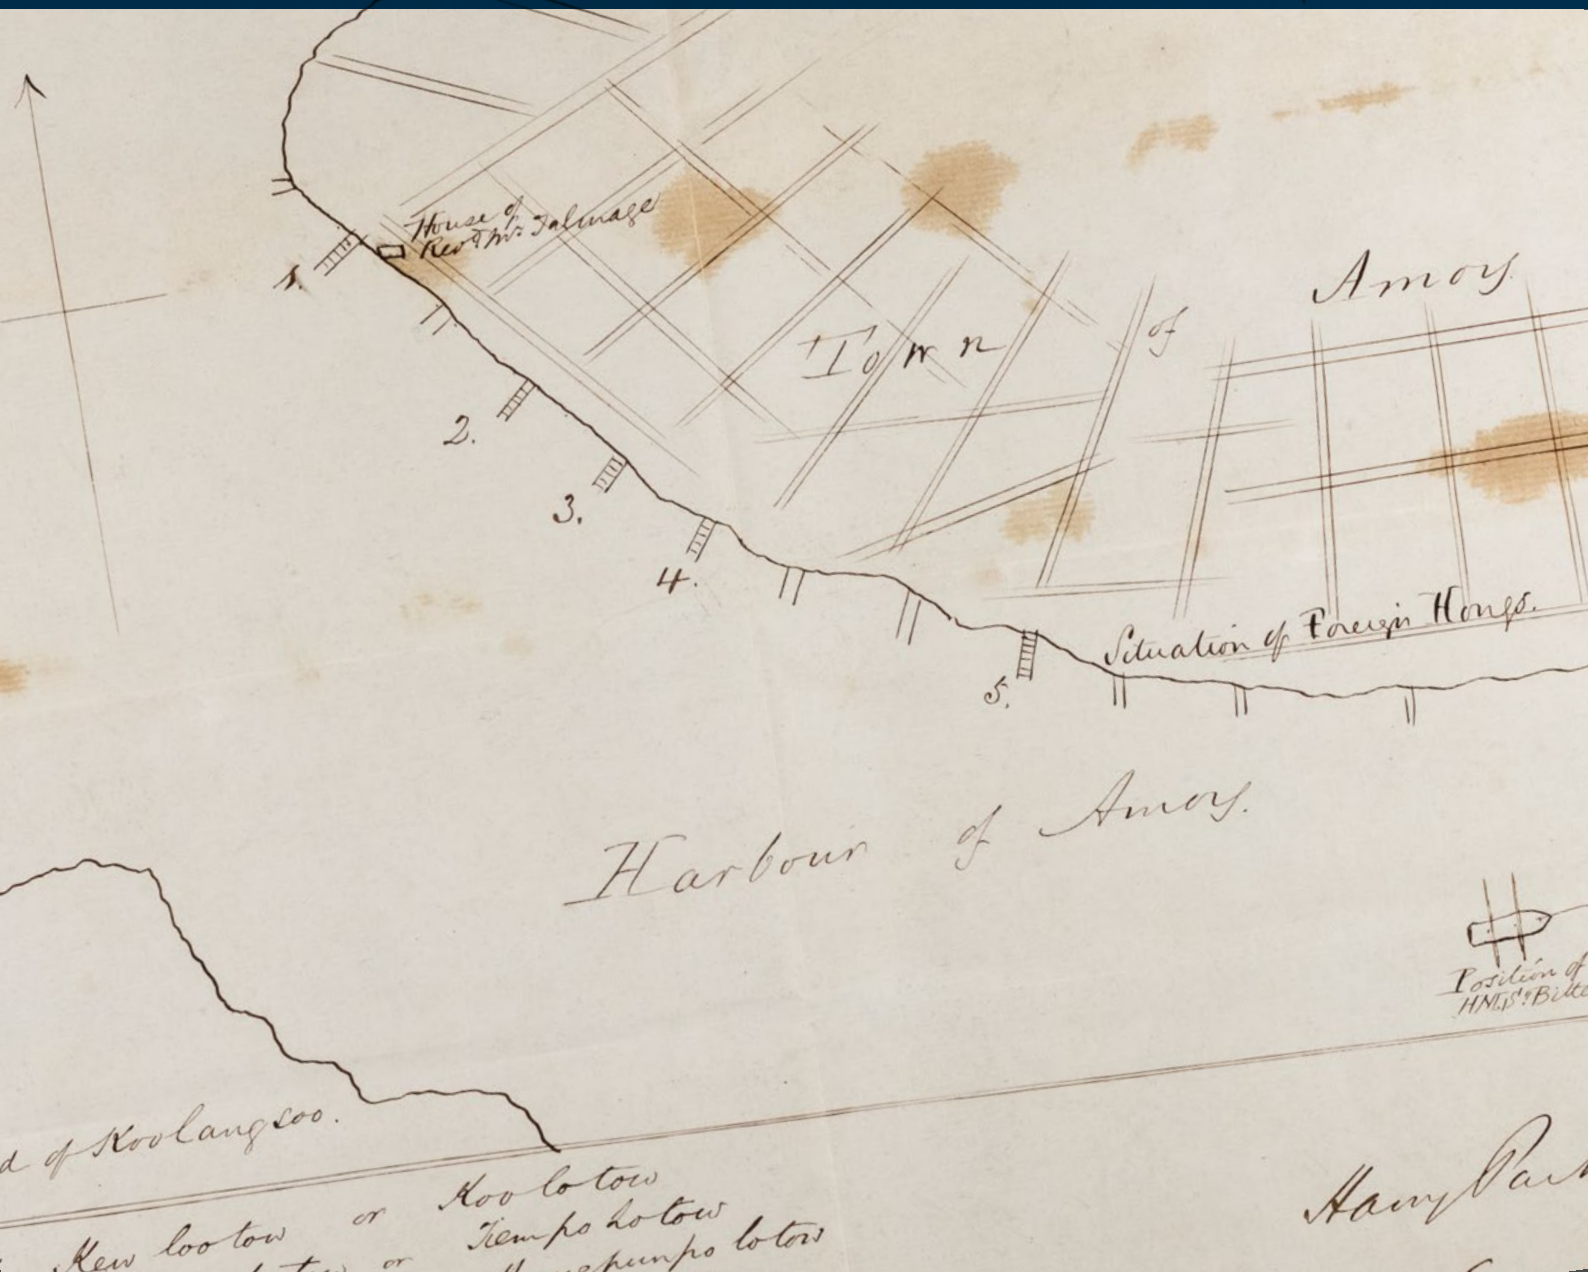 House of
Revd Mr Talmage
Amoy
Town of
1.
2.
3.
4.
5.
Situation of Foreign Hongs.
Harbour of Amoy.
Position of
H.M.S. Bitte
d of Koolangsoo.
Kew loo tow or Koo lo tow
or Tempo lo tow
lo tow
Harry Park